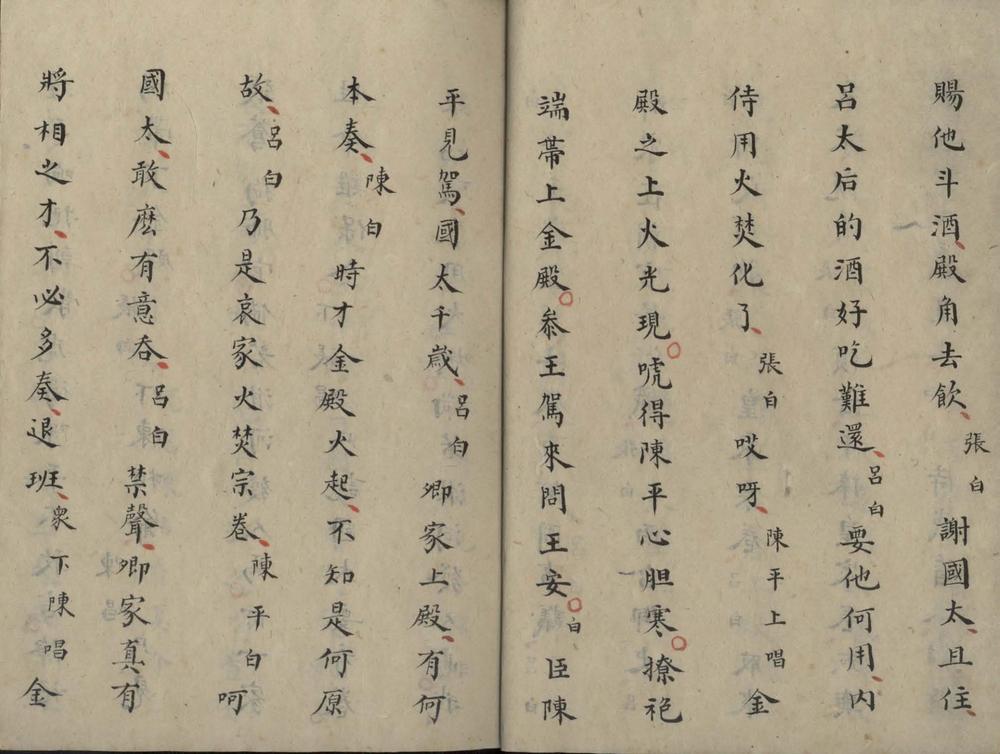 賜他斗酒、殿角去飲、張白謝國太、且住、
呂太后的酒好吃難還、呂白要他何用、內
侍用火焚化了、張白哎呀、陳平上唱金
殿之上火光現○唬得陳平心胆寒○撩袍
端帶上金殿○叅王駕來問王安○白臣陳
平見駕、國太千歲、呂白卿家上殿、有何
本奏、陳白時才金殿火起、不知是何原
故、呂白乃是哀家火焚宗卷、陳平白呵
國太、敢麽有意吞、呂白禁聲、卿家真有
將相之才、不必多奏、退班、衆下陳唱金